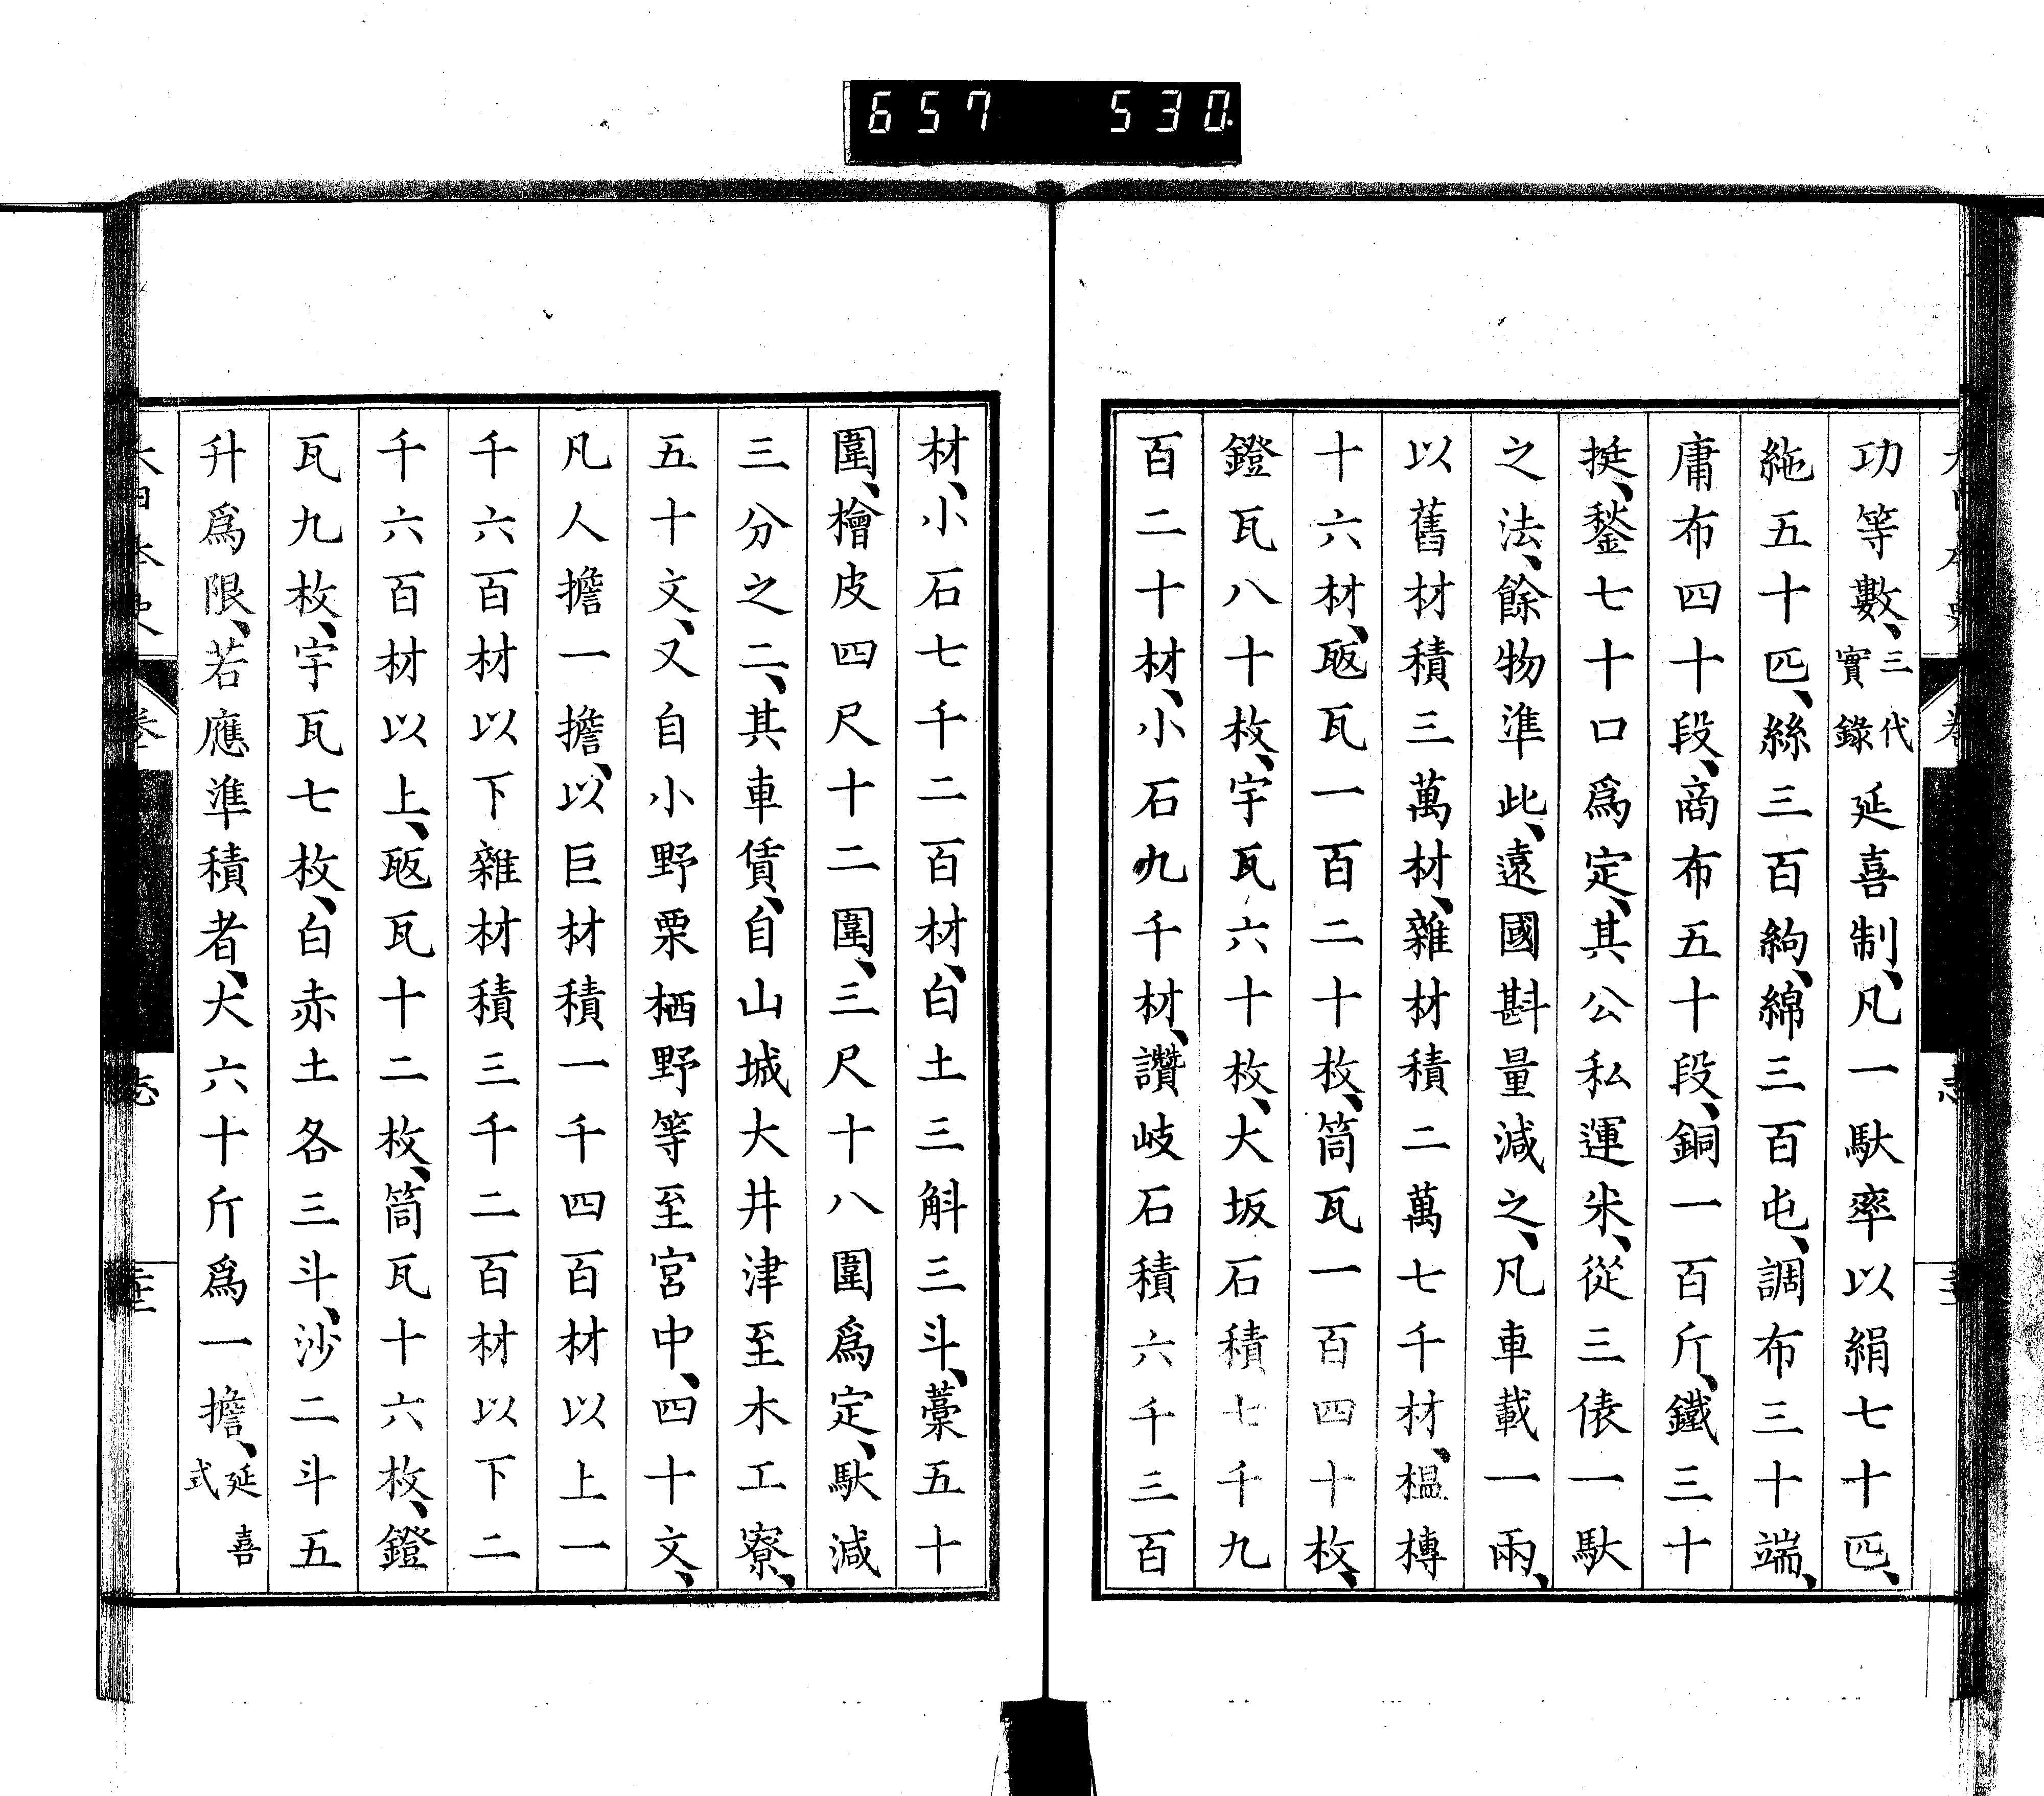 657 530
功等數、三代實錄延喜制、凡一馱率以絹七十匹、
絁五十匹、絲三百絇、綿三百屯、調布三十端、
庸布四十段、商布五十段、銅一百斤、鐵三十
挺、鍫七十口爲定、其公私運米、從三俵一馱
之法、餘物準此、遠國斟量減之、凡車載一兩、
以舊材積三萬材、雜材積二萬七千材、榲榑
十六材、瓪瓦一百二十枚、筒瓦一百四十枚、
鐙瓦八十枚、宇瓦六十枚、大坂石積七千九
百二十材、小石九千材、讚岐石積六千三百
材、小石七千二百材、白土三斛三斗、藁五十
圍、檜皮四尺十二圍、三尺十八圍爲定、馱減
三分之二、其車賃、自山城大井津至木工寮、
五十文、又自小野栗栖野等至宮中、四十文、
凡人擔一擔、以巨材積一千四百材以上一
千六百材以下雜材積三千二百材以下二
千六百材以上、瓪瓦十二枚、筒瓦十六枚、鐙
瓦九枚、宇瓦七枚、白赤土各三斗、沙二斗五
升爲限、若應準積者、大六十斤爲一擔、延喜式